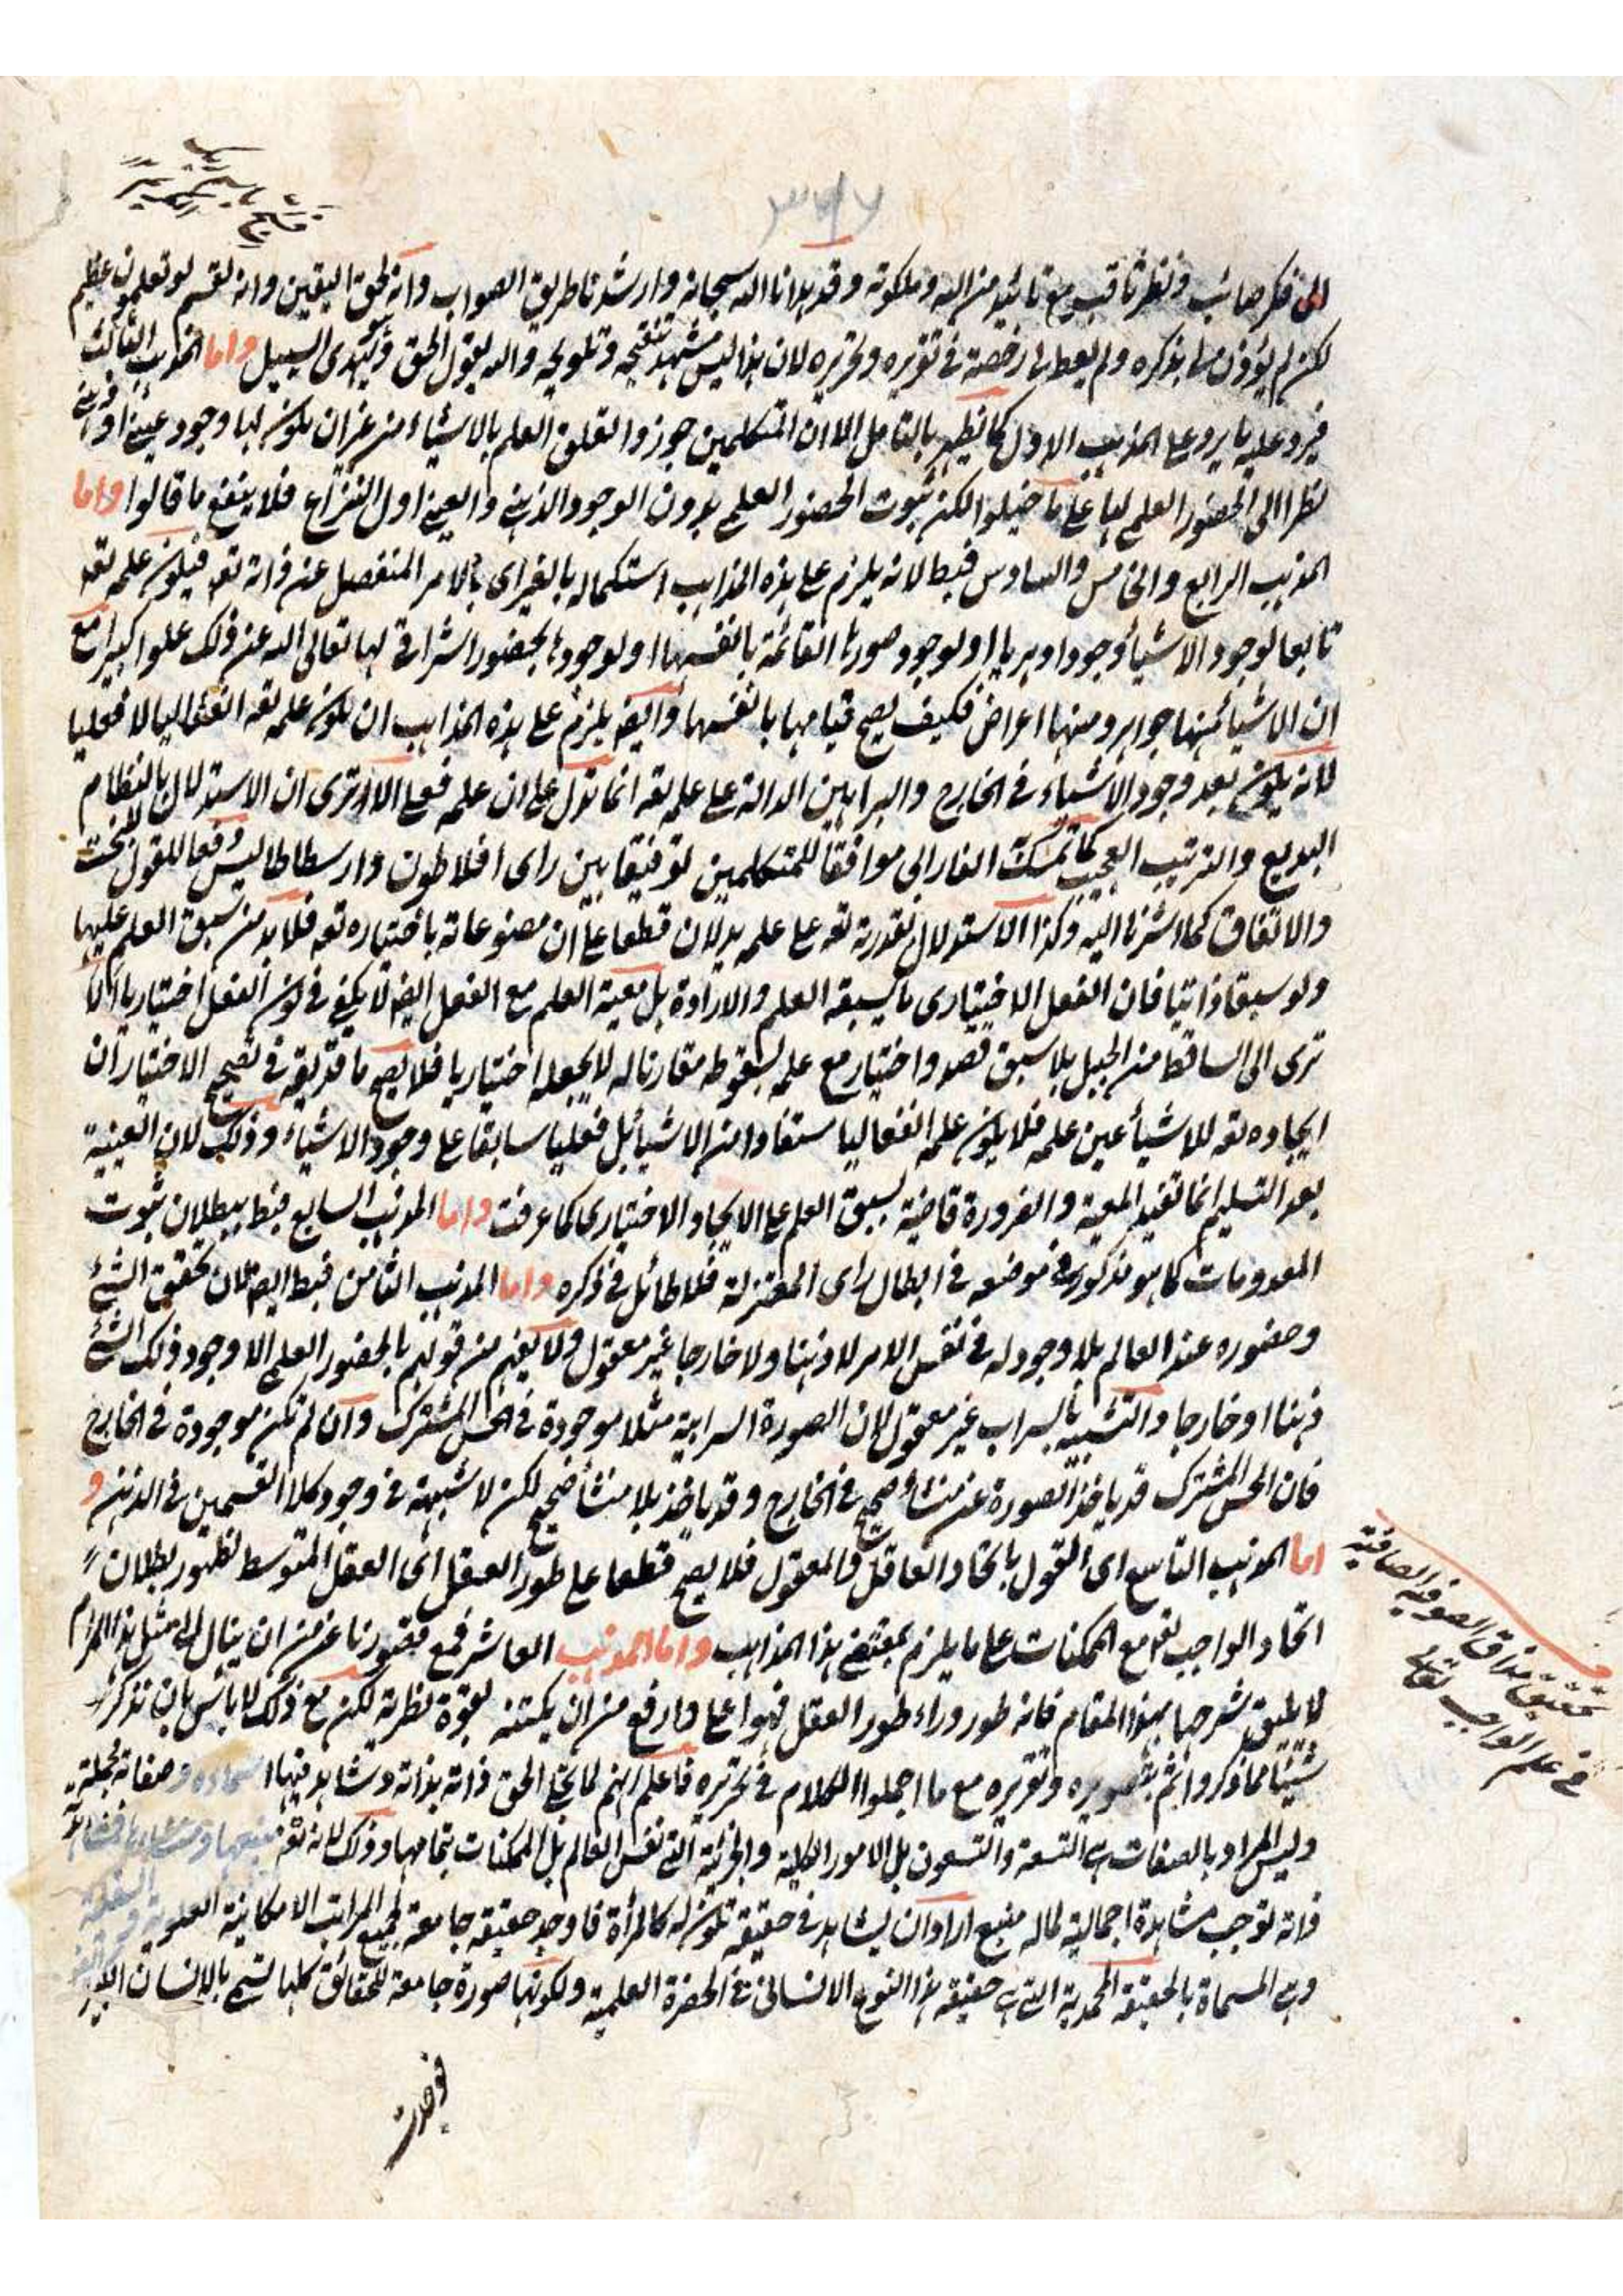 الى فكر صائب ونظر ثاقب مع تائيد من الله وملكوته وقد هدانا الله سبحانه وارشدنا طريق الصواب وانه لحق اليقين وانه لقسم لو تعلمون عظيم
لكن لم يؤذن لى بذكره ولم يعط لى رخصة فى تقريره وتحريره لان هذا ليس مشهد تنقيحه وتلويحه والله يقول الحق وهو يهدى السبيل واما المذهب الثالث
فيرد عليه ما يرد على المذهب الاول كما يظهر بالتامل الا ان المتكلمين جوزوا تعلق العلم بالاشياء من غير ان يكون لها وجود عينى او ذهنى
نظرا الى الحضور العلمى لها على ما خيلوا لكن ثبوت الحضور العلمى بدون الوجود الذهنى والعينى اول النزاع فلا ينفع ما قالوا واما
المذهب الرابع والخامس والسادس فبط لانه يلزم على هذه المذاهب استكماله بالغير اى بالامر المنفصل عن ذاته تعه فيكون علمه تعه
تابعا لوجود الاشياء وجودا دهريا او لوجود صورها القائمة بانفسها او لوجودها بحضور اشراقى لها تعالى الله عن ذلك علوا كبيرا مع
ان الاشياء منها جواهر ومنها اعراض فكيف يصح قيامها بانفسها وايضه يلزم على هذه المذاهب ان يكون علمه تعه انفعاليا لا فعليا
لانه يكون بعد وجود الاشياء فى الخارج والبراهين الدالة على علمه تعه انما تدل على ان علمه فعلى الا ترى ان الاستدلال بالنظام
البديع والترتيب العجيب كما تمسك الفارابى موافقا للمتكلمين توفيقا بين راى افلاطون وارسطاطاليس دفعا للقول بالبخت
والاتفاق كما اشرنا اليه وكذا الاستدلال بقدرته تعه على علمه يدلان قطعا على ان مصنوعاته باختياره تعه فلا بد من سبق العلم عليها
ولو سبقا ذاتيا فان الفعل الاختيارى ما يسبقه العلم والارادة بل معية العلم مع الفعل ايضه لا يكفى فى كون الفعل اختياريا الا
ترى الى الساقط من الجبل بلا سبق قصد واختيار مع علمه بسقوطه مقارنا له لا يجعله اختياريا فلا يصح ما قد يقه فى تصحيح الاختيار ان
ايجاده تعه للاشياء عين علمه فلا يكون علمه انفعاليا مستفادا من الاشياء بل فعليا سابقا على وجود الاشياء وذلك لان العينية
بعد التسليم انما تفيد المعية والضرورة قاضية بسبق العلم على الايجاد الاختيارى كما عرفت واما المذهب السابع فبط ببطلان ثبوت
المعدومات كما هو مذكور فى موضعه فى ابطال راى المعتزلة فلا طائل فى ذكره واما المذهب الثامن فبط ايضه لان تحقيق الشئ
وحضوره عند العالم بلا وجود له فى نفس الامر لا ذهنا ولا خارجا غير معقول ولا يفهم من قولهم بالحضور العلمى الا وجود ذلك الشئ
ذهنا او خارجا والتشبيه بالسراب غير معقول لان الصورة السرابية مثلا موجودة فى الحس المشترك وان لم تكن موجودة فى الخارج
فان الحس المشترك قد ياخذ الصورة عن منشأ صحيح فى الخارج وقد ياخذ بلا منشأ صحيح لكن لا شبهة فى وجود كلا القسمين فى الذهن و
اما المذهب التاسع اى القول باتحاد العاقل والمعقول فلا يصح قطعا على طور العقل اى العقل المتوسط لظهور بطلان
اتحاد الواجب تعه مع الممكنات على ما يلزم بمقتضى هذا المذاهب واما المذهب العاشر فمع قصورنا عن ان ينال الى مثل هذا المرام
لا يليق شرحها بهذا المقام فانه طور وراء طور العقل فهو اعلى وارفع من ان يكتنه بقوة نظرية لكن مع ذلك لا باس بان نذكر
شيئا مما ذكروا هم بتصويره وتقريره مع ما اجملوا الكلام فى تحريره فاعلم انهم لما تجلى الحق ذاته بذاته وشاهد فيها اسماءه وصفاته مجملة
وليس المراد بالصفات هى التسعة والتسعون بل الامور الكلية والجزئية التى نفس العالم بل الممكنات بتمامها وذلك لانه تعه منبعها
ذاته توجب مشاهدة اجمالية لما له منبع اراد ان يشاهد فى حقيقة تكون له كالمرأة فاوجد حقيقة جامعة لجميع المراتب الامكانية العلوية
وهى المسماة بالحقيقة المحمدية التى هى حقيقة هذا النوع الانسانى فى الحضرة العلمية ولكونها صورة جامعة للحقائق كلها تسمى بالانسان الكبير
تحقيق مذاق الصوفية الصافية
فى علم الواجب تعالى
فوجدت